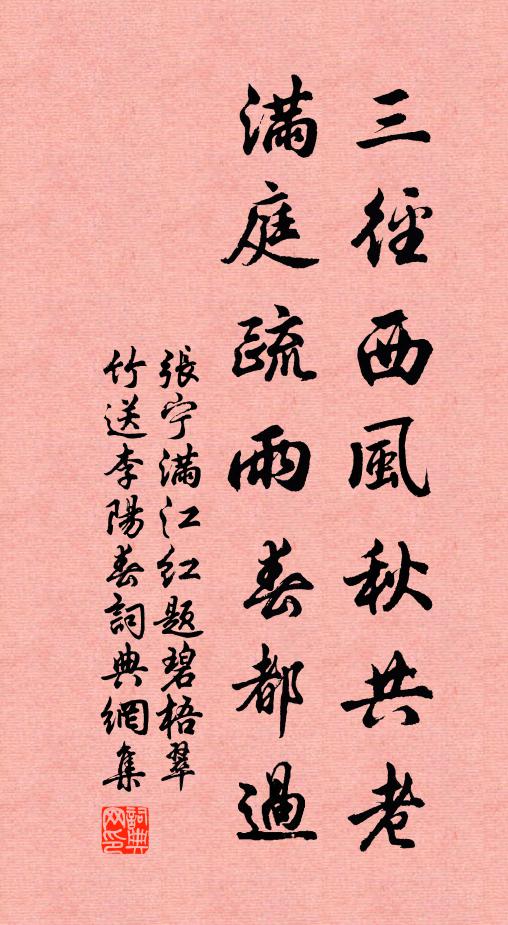 三徑西風秋共老
滿庭疏雨春都過
張宁滿江红题碧梧翠
竹送李陽春詞典網集
詞典网印